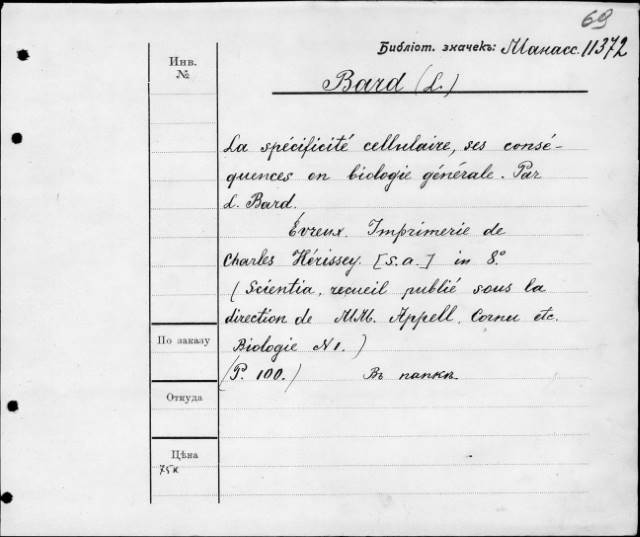 69
Библіот. значекъ: Манасс. 11372
Инв.
№
Bard (L.)
La spécificité cellulaire, ses consé-
quences en biologie générale. Par
L. Bard.
Évreux. Imprimerie de
Charles Hérissey. [s.a.] in 8.°
(Scientia, recueil publié sous la
direction de MM. Appell, Cornu etc.
Biologie N1.)
По заказу
(P. 100.) Въ папкѣ.
Откуда
Цѣна
75к